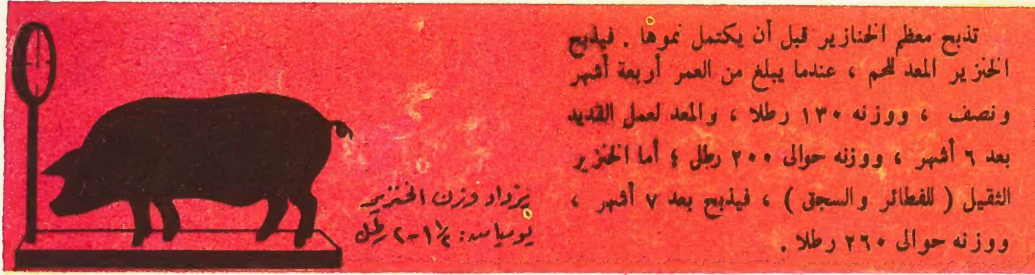 تذبح معظم الخنازير قبل أن يكتمل نموها . فيذبح
الخنزير المعد للحم ، عندما يبلغ من العمر أربعة أشهر
ونصف ، ووزنه ١٣٠ رطلا ، والمعد لعمل القديد
بعد ٦ أشهر ، ووزنه حوالى ٢٠٠ رطل ؛ أما الخنزير
الثقيل ( للفطائر والسجق ) ، فيذبح بعد ٧ أشهر ،
ووزنه حوالى ٢٦٠ رطلا .
يزداد وزن الخنزير
يوميا من : ١½ - ٢ رطل